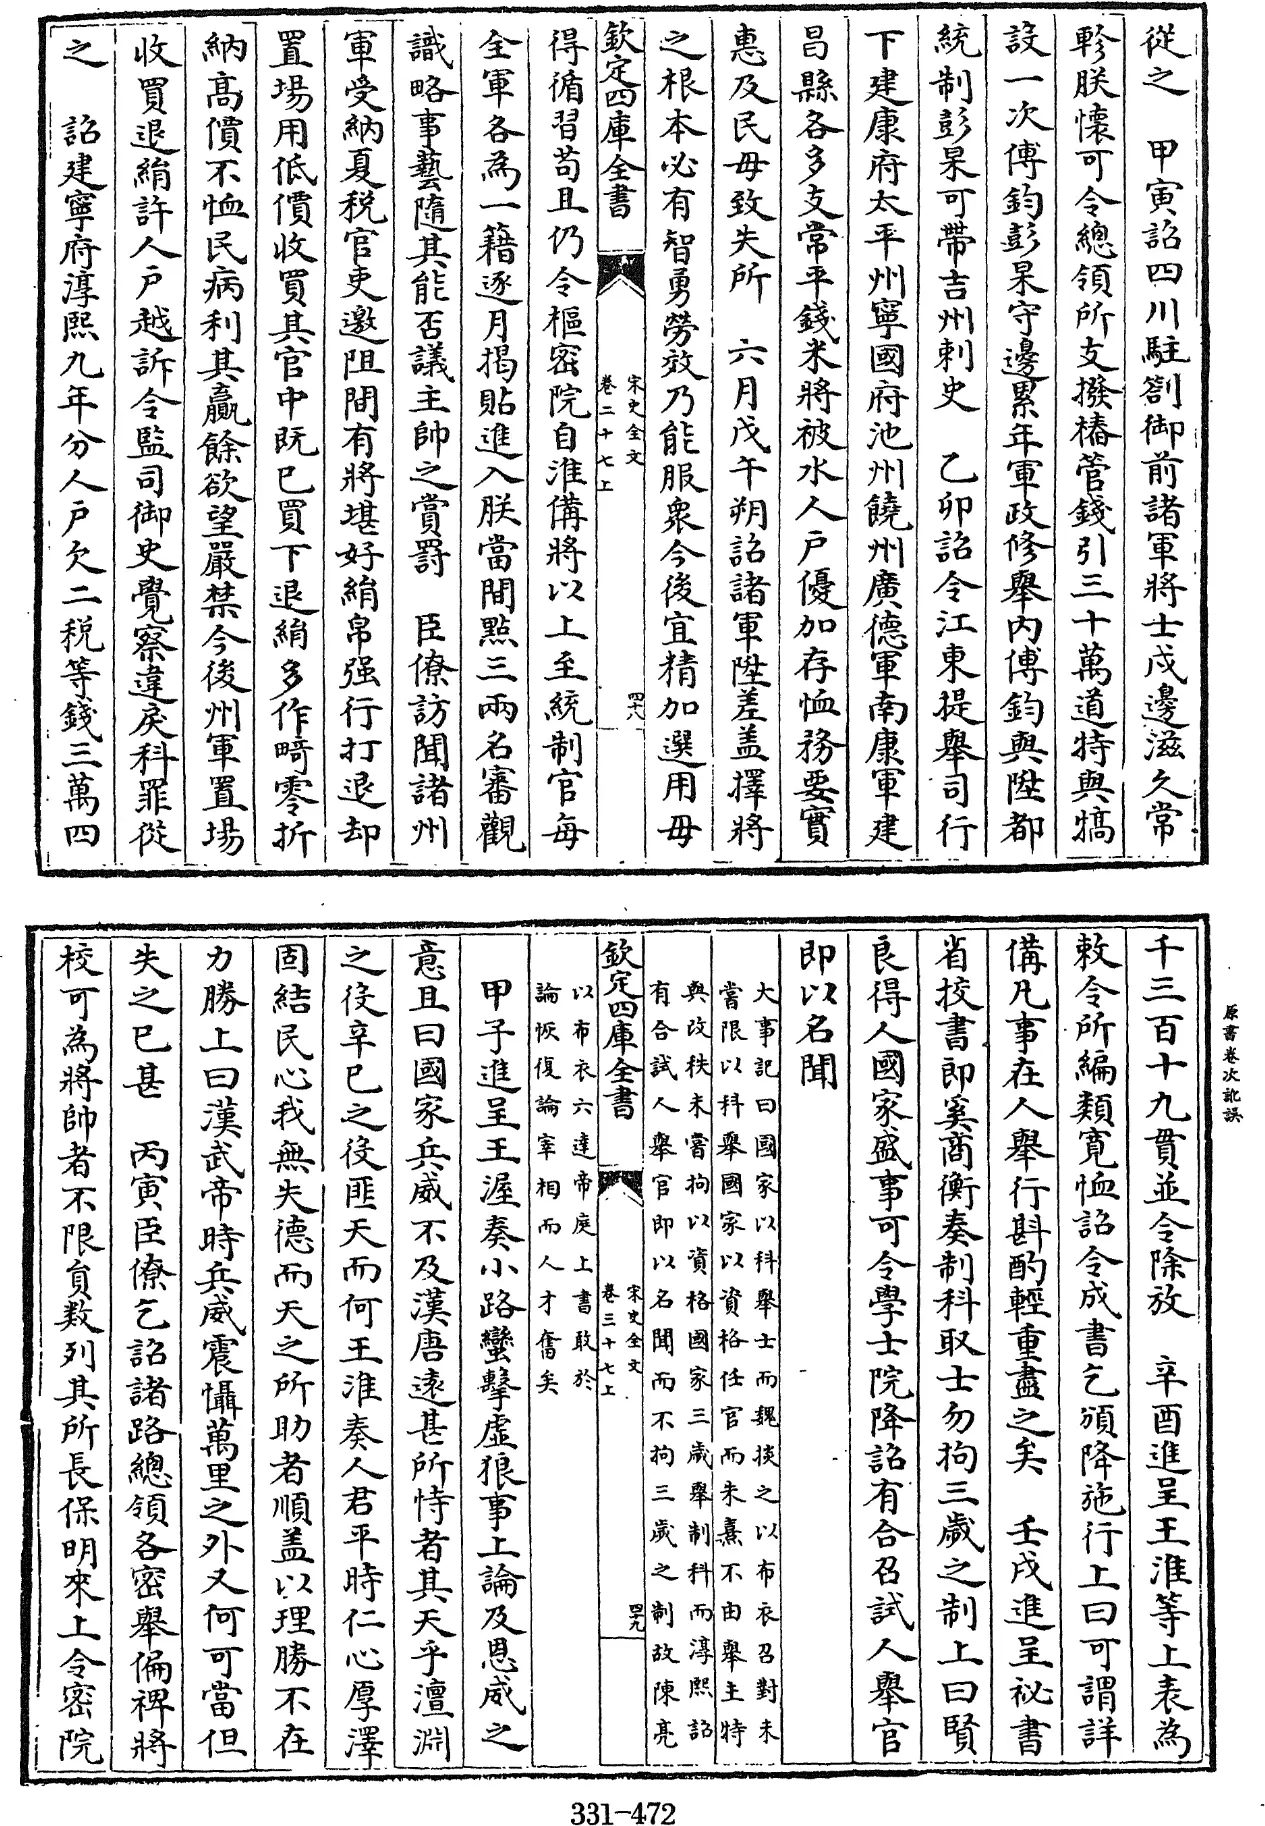 從之　甲寅詔四川駐劄御前諸軍將士戍邊滋久常
軫朕懷可令總領所支撥樁管錢引三十萬道特與犒
設一次傅鈞彭杲守邊累年軍政修舉内傅鈞與陞都
統制彭杲可帶吉州刺史　乙卯詔令江東提舉司行
下建康府太平州寧國府池州饒州廣德軍南康軍建
昌縣各多支常平錢米將被水人戸優加存恤務要實
惠及民毋致失所　六月戊午朔詔諸軍陞差盖擇將
之根本必有智勇勞效乃能服衆今後宜精加選用毋
欽定四庫全書
宋史全文
卷二十七上
四十八
得循習苟且仍令樞密院自淮備將以上至統制官每
全軍各為一籍逐月揭貼進入朕當間點三兩名審觀
識略事藝隨其能否議主帥之賞罰　臣僚訪聞諸州
軍受納夏税官吏邀阻間有將堪好絹帛强行打退却
置場用低價收買其官中既已買下退絹多作畸零折
納高價不恤民病利其贏餘欲望嚴禁今後州軍置場
收買退絹許人戸越訴令監司御史覺察違戾科罪從
之　詔建寧府淳熙九年分人戸欠二税等錢三萬四
原書卷次訛誤
千三百十九貫並令除放　辛酉進呈王淮等上表為
敕令所編類寬恤詔令成書乞頒降施行上曰可謂詳
備凡事在人舉行斟酌輕重盡之矣　壬戌進呈祕書
省校書郎奚商衡奏制科取士勿拘三歲之制上曰賢
良得人國家盛事可令學士院降詔有合召試人舉官
即以名聞
大事記曰國家以科舉士而魏掞之以布衣召對未
嘗限以科舉國家以資格任官而朱熹不由舉主特
與改秩未嘗拘以資格國家三歲舉制科而淳熙詔
有合試人舉官即以名聞而不拘三歲之制故陳亮
欽定四庫全書
宋史全文
卷三十七上
四十九
以布衣六達帝庭上書敢於
論恢復論宰相而人才奮矣
甲子進呈王渥奏小路蠻擊虚狼事上論及恩威之
意且曰國家兵威不及漢唐遠甚所恃者其天乎澶淵
之役辛巳之役匪天而何王淮奏人君平時仁心厚澤
固結民心我無失德而天之所助者順盖以理勝不在
力勝上曰漢武帝時兵威震懾萬里之外又何可當但
失之已甚　丙寅臣僚乞詔諸路總領各密舉偏裨將
校可為將帥者不限員数列其所長保明來上令密院
331-472